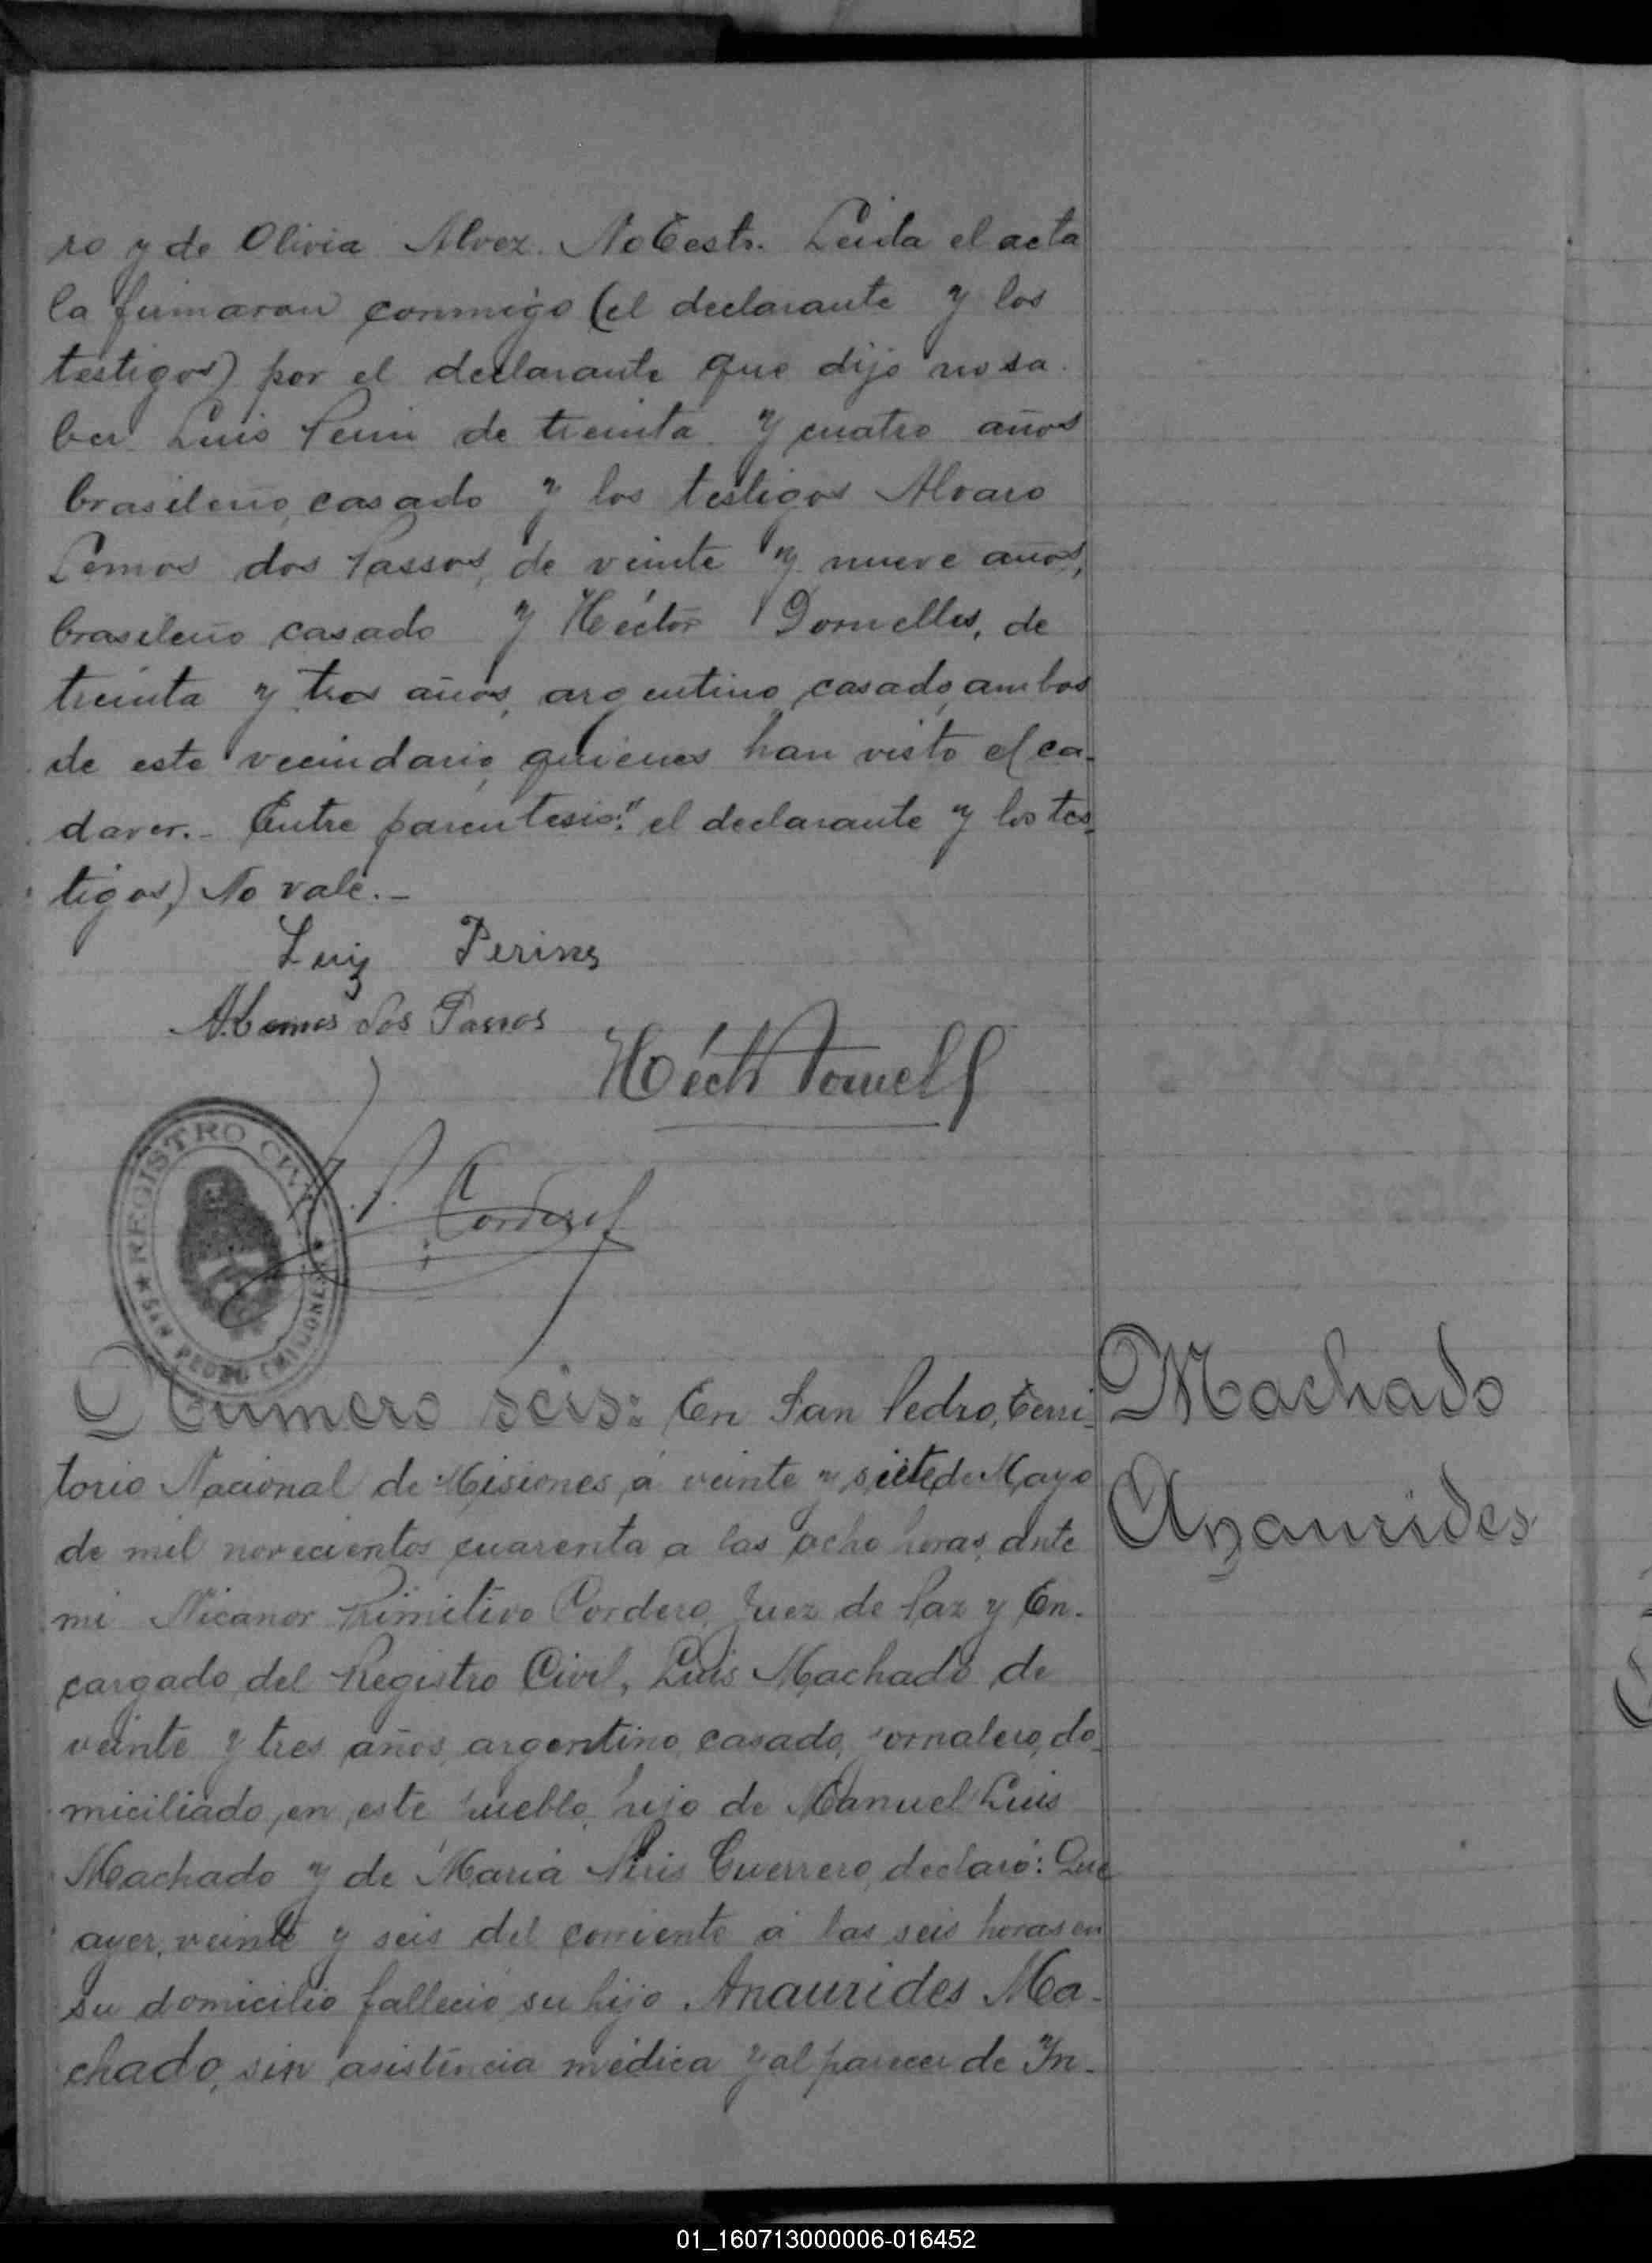 ro y de Olivia Alvez. No test. Leida el acta
la firmaron conmigo (el declarante y los
testigos) por el declarante que dijo no sa-
ber Luis Perin de treinta y cuatro años
brasileño, casado y los testigos Alvaro
Lemos dos Passos, de veinte y nueve años,
brasileño casado y Héctor Dornelles, de
treinta y tres años, argentino, casado, ambos
de este vecindario, quienes han visto el ca-
daver.- Entre parentesis: "el declarante y los tes-
tigos) No vale.-
Luiz Perin
A. Lemos dos Passos
REGISTRO CIVIL
SAN PEDRO (MISIONES)
Cordero
Numero seis: En San Pedro, Terri-
Machado
Anaurides
torio Nacional de Misiones, á veinte y siete de Mayo
de mil novecientos cuarenta a las ocho horas, ante
mi Nicanor Primitivo Cordero, Juez de Paz y En-
cargado del Registro Civil, Luis Machado de
veinte y tres años, argentino, casado, jornalero, do-
miciliado en este pueblo, hijo de Manuel Luis
Machado y de Maria Guerrero, declaró: Que
ayer, veinte y seis del corriente á las seis horas en
su domicilio falleció su hijo Anaurides Ma-
chado, sin asistencia médica y al parecer de In-
01_160713000006-016452